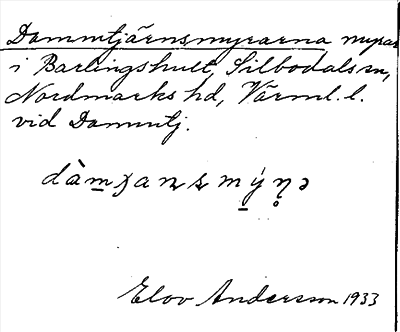 Dammtjärnsmyrarna myrar
i Barlingshult, Silbodals sn,
Nordmarks hd, Värml. l.
vid Dammtj.
Elov Andersson 1933